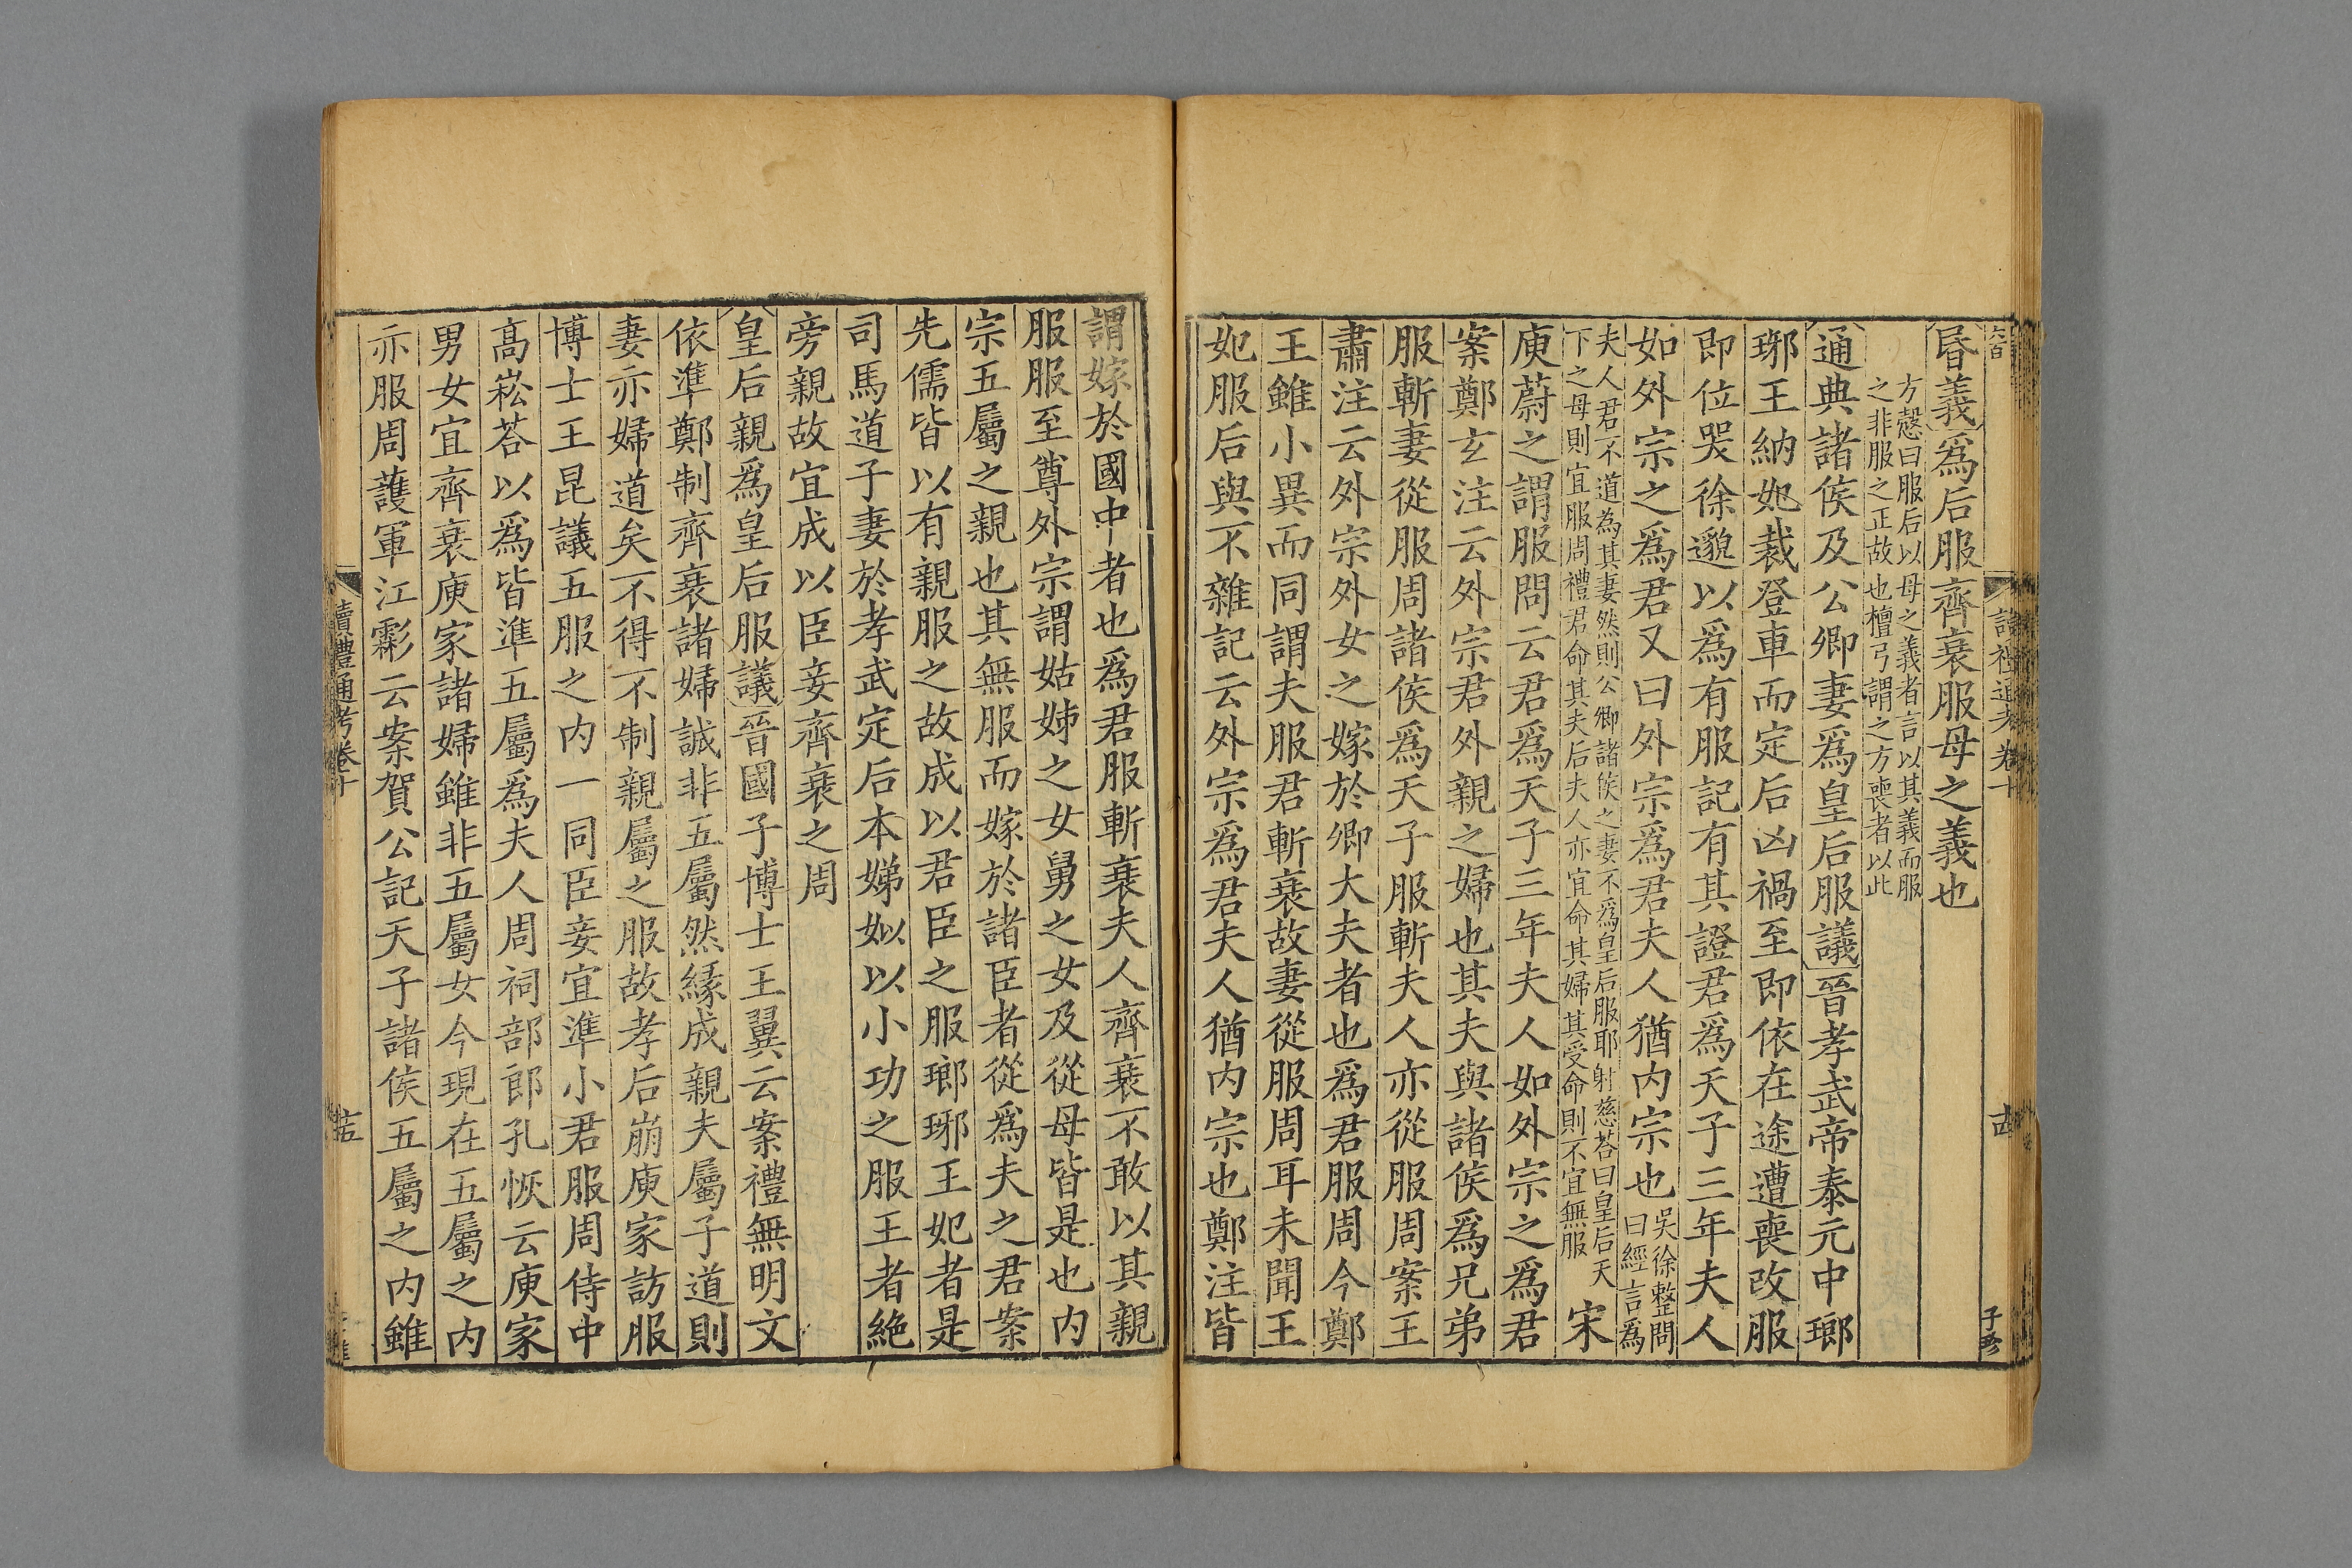 昬義爲后服齊衰服母之義也
方慤曰服后以母之義者言以其義而服
之非服之正故也檀弓謂之方喪者以此
通典諸侯及公卿妻爲皇后服議晉孝武帝泰元中瑯
琊王納妃裁登車而定后凶禍至即依在途遭喪改服
即位哭徐邈以爲有服記有其證君爲天子三年夫人
如外宗之爲君又曰外宗爲君夫人猶内宗也
吳徐整問
曰經言爲
夫人君不道為其妻然則公卿諸侯之妻不爲皇后服耶射慈荅曰皇后天
下之母則宜服周禮君命其夫后夫人亦宜命其婦其受命則不宜無服
宋
庾蔚之謂服問云君爲天子三年夫人如外宗之爲君
案鄭玄注云外宗君外親之婦也其夫與諸侯爲兄弟
服斬妻從服周諸侯爲天子服斬夫人亦從服周案王
肅注云外宗外女之嫁於卿大夫者也爲君服周今鄭
王雖小異而同謂夫服君斬衰故妻從服周耳未聞王
妃服后與不雜記云外宗爲君夫人猶内宗也鄭注皆
謂嫁於國中者也爲君服斬衰夫人齊衰不敢以其親
服服至尊外宗謂姑姊之女舅之女及從母皆是也内
宗五屬之親也其無服而嫁於諸臣者從爲夫之君案
先儒皆以有親服之故成以君臣之服瑯琊王妃者是
司馬道子妻於孝武定后本娣姒以小功之服王者絶
旁親故宜成以臣妾齊衰之周
皇后親爲皇后服議晉國子博士王翼云案禮無明文
依準鄭制齊衰諸婦誠非五屬然緣成親夫屬子道則
妻亦婦道矣不得不制親屬之服故孝后崩庾家訪服
博士王昆議五服之内一同臣妾宜準小君服周侍中
高崧荅以爲皆準五屬爲夫人周祠部郎孔恢云庾家
男女宜齊衰庾家諸婦雖非五屬女今現在五屬之内
亦服周護軍江霦云案賀公記天子諸侯五屬之内雖
讀禮通考卷十